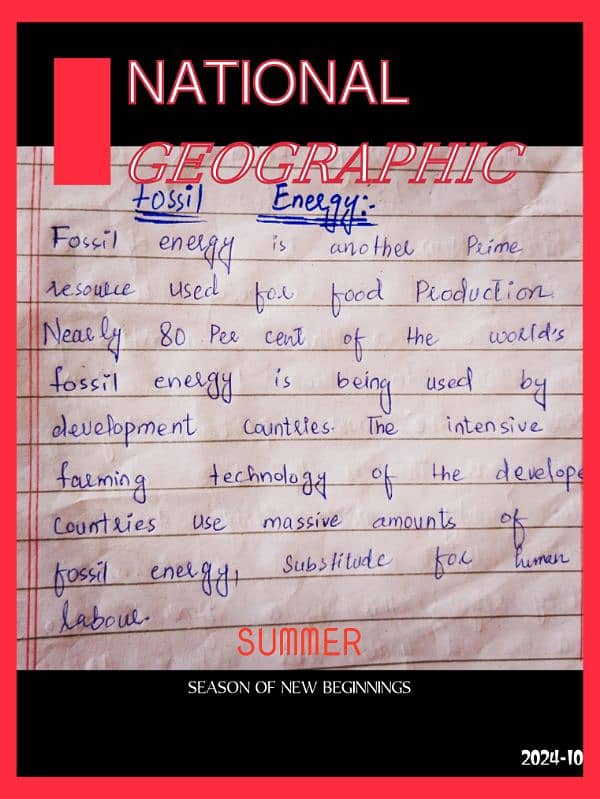 NATIONAL
GEOGRAPHIC
Fossil Energy:-
Fossil energy is another Prime
resource used for food Production.
Nearly 80 Per cent of the world's
fossil energy is being used by
development Countries. The intensive
farming technology of the develope
Countries use massive amounts of
fossil energy, Substitude for human
labour.
SUMMER
SEASON OF NEW BEGINNINGS
2024-10